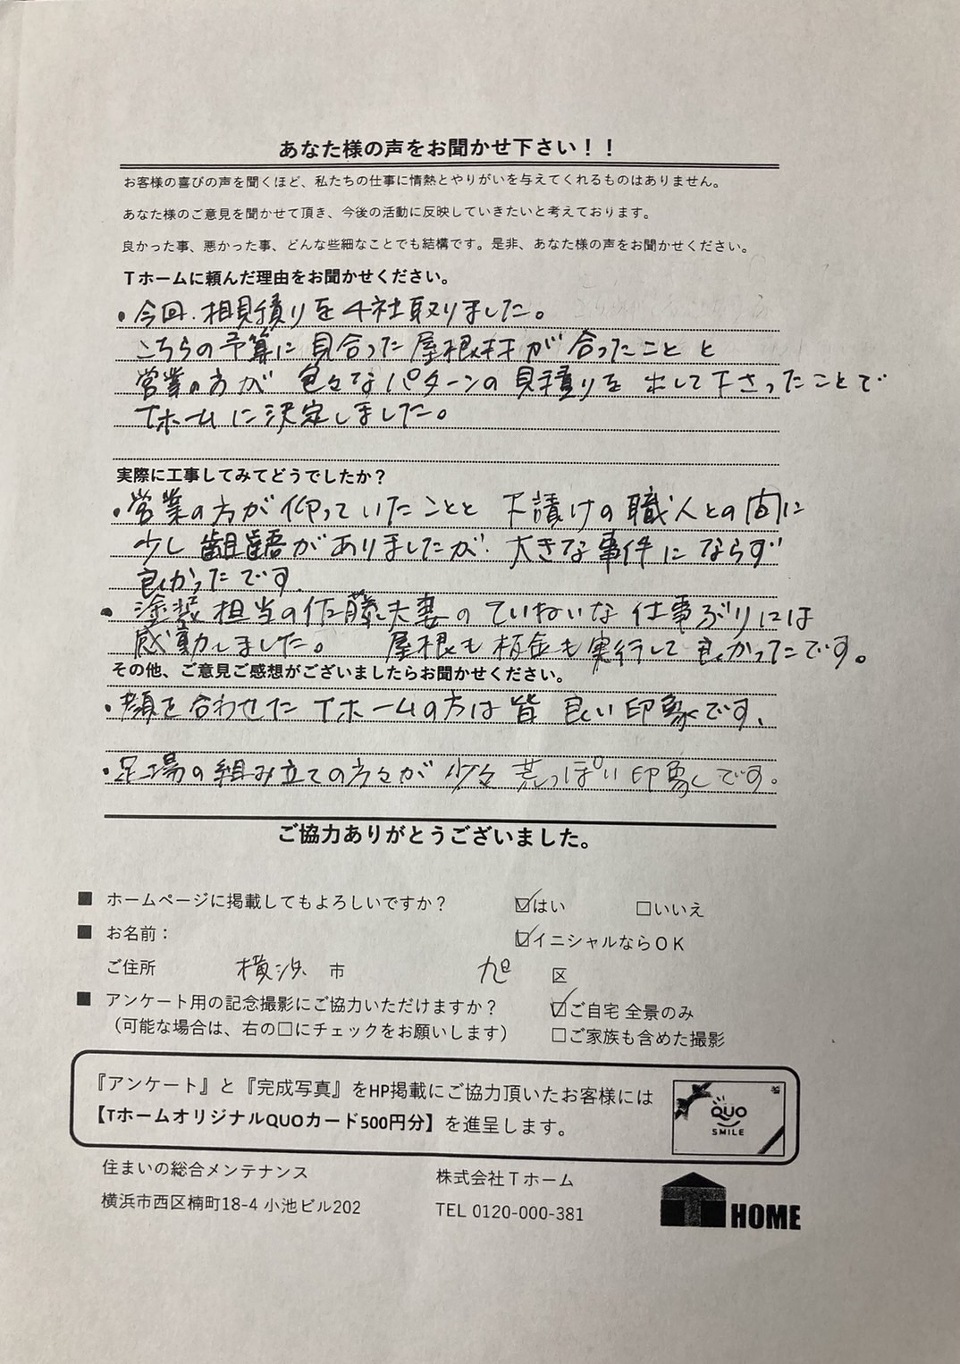 あなた様の声をお聞かせ下さい！！
お客様の喜びの声を聞くほど、私たちの仕事に情熱とやりがいを与えてくれるものはありません。
あなた様のご意見を聞かせて頂き、今後の活動に反映していきたいと考えております。
良かった事、悪かった事、どんな些細なことでも結構です。是非、あなた様の声をお聞かせください。
Tホームに頼んだ理由をお聞かせください。
・今回、相見積りを4社取りました。
こちらの予算に見合った屋根材が合ったことと
営業の方が色々なパターンの見積りを出して下さったことで
Tホームに決定しました。
実際に工事してみてどうでしたか？
・営業の方が仰っていたことと下請けの職人との間に
少し齟齬がありましたが、大きな事件にならず
良かったです。
・塗装担当の佐藤夫妻のていねいな仕事ぶりには
感動しました。 屋根も板金も実行して良かったです。
その他、ご意見ご感想がございましたらお聞かせください。
・顔を合わせたTホームの方は皆良い印象です、
・足場の組み立ての方々が少々荒っぽい印象です。
ご協力ありがとうございました。
■ ホームページに掲載してもよろしいですか？ ☑はい □いいえ
■ お名前： ☑イニシャルならＯＫ
ご住所 横浜 市 旭 区
■ アンケート用の記念撮影にご協力いただけますか？ ☑ご自宅 全景のみ
（可能な場合は、右の□にチェックをお願いします） □ご家族も含めた撮影
『アンケート』と『完成写真』をHP掲載にご協力頂いたお客様には
【TホームオリジナルQUOカード500円分】を進呈します。
QUO
SMILE
住まいの総合メンテナンス 株式会社Tホーム
横浜市西区楠町18-4 小池ビル202 TEL 0120-000-381
T HOME